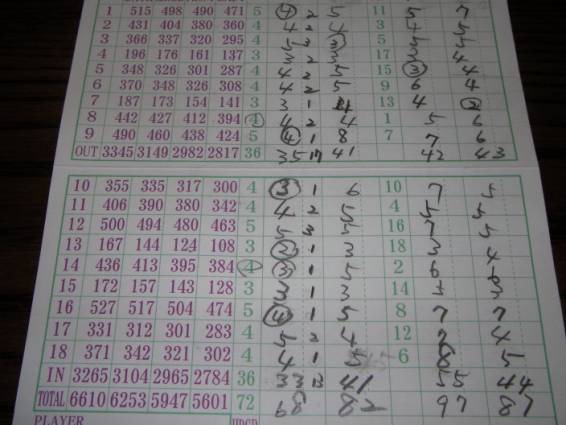 1 515 498 490 471 5 4 2 5 11 5 7
2 431 404 380 360 4 4 2 4 3 5
3 366 337 320 295 4 5 3 5 5 5
4 196 176 161 137 3 3 2 3 17 3 4
5 348 326 301 287 4 4 2 5 15 3 5
6 370 348 326 308 4 4 2 5 9 6 4
7 187 173 154 141 3 3 1 4 13 4 2
8 442 427 412 394 4 4 2 4 1 5 6
9 490 460 438 424 5 4 1 8 7 7 6
OUT 3345 3149 2982 2817 36 35 17 41 42 43
10 355 335 317 300 4 3 1 6 10 7 5
11 406 390 380 342 4 4 2 5 4 5 5
12 500 494 480 463 5 5 3 5 16 7 5
13 167 144 124 108 3 2 1 3 18 3 4
14 436 413 395 384 4 3 1 5 2 6
15 172 157 143 128 3 3 1 3 14 5 3
16 527 517 504 474 5 4 1 5 8 7 7
17 331 312 301 283 4 5 2 4 12 4
18 371 342 321 302 4 4 1 5 6 8 5
IN 3265 3104 2965 2784 36 33 13 41 55 44
TOTAL 6610 6253 5947 5601 72 68 82 97 87
PLAYER HDCP